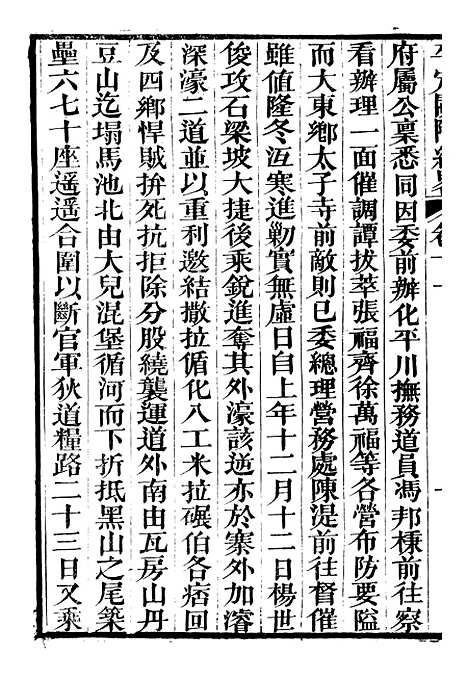 府屬公稟悉同因委前辦化平川撫務道員馮邦棟前往察
看辦理一面催調譚拔萃張福齊徐萬福等各營布防要隘
而大東鄉太子寺前敵則已委總理營務處陳湜前往督催
雖值隆冬沍寒進勦實無虛日自上年十二月十二日楊世
俊攻石梁坡大捷後乘銳進奪其外濠該逆亦於寨外加濬
深濠二道並以重利邀結撒拉循化八工米拉碾伯各痞回
及四鄉悍賊拚死抗拒除分股繞襲運道外南由瓦房山丹
豆山迄塌馬池北由大兒混堡循河而下折抵黑山之尾築
壘六七十座遥遥合圍以斷官軍狄道糧路二十三日又乘